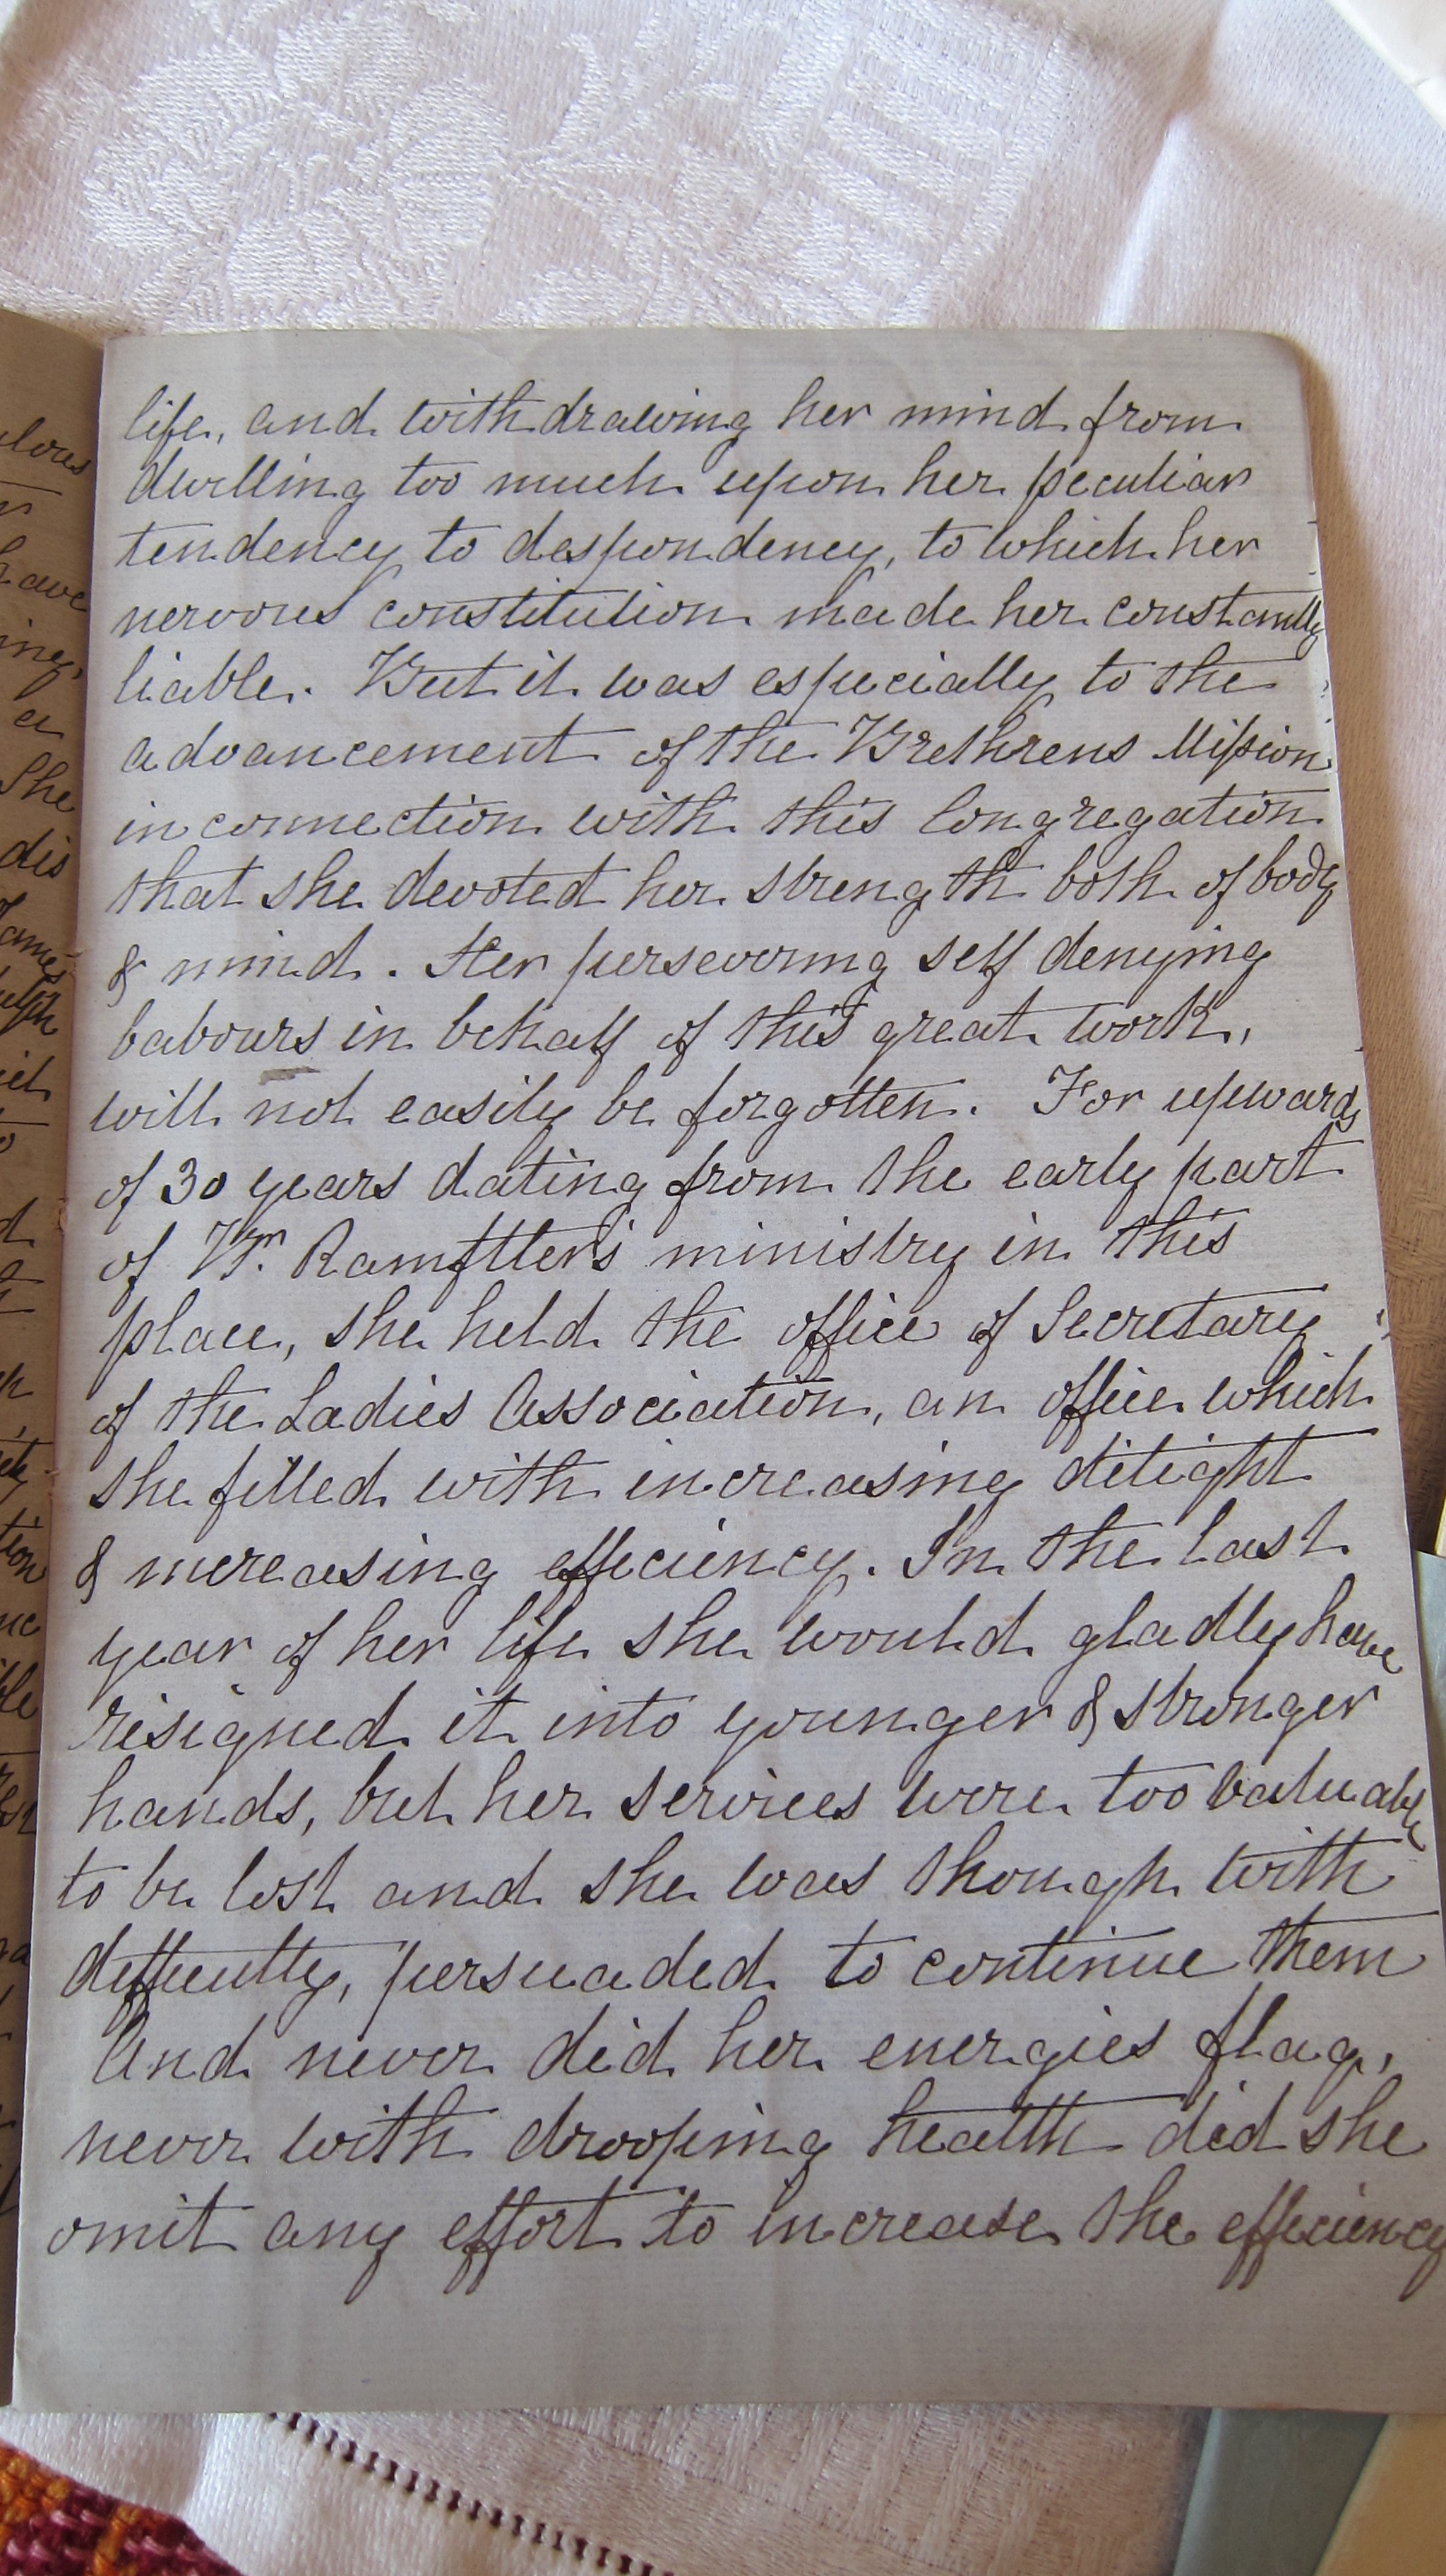 life, and withdrawing her mind from
dwelling too much upon her peculiar
tendency to despondency, to which her
nervous constitution made her constantly
liable. But it was especially to the
advancement of the Brethrens Mission
in connection with this Congregation
that she devoted her strength both of body
& mind. Her persevering self denying
labours in behalf of this great work,
will not easily be forgotten. For upwards
of 30 years dating from the early part
of Br. Ramftler's ministry in this
place, she held the office of Secretary
of the Ladies Association, an office which
she filled with increasing delight
& increasing efficiency. In the last
year of her life she would gladly have
resigned it into younger & stronger
hands, but her services were too valuable
to be lost and she was though with
difficulty, persuaded to continue them
And never did her energies flag,
never with drooping health did she
omit any effort to increase the efficiency